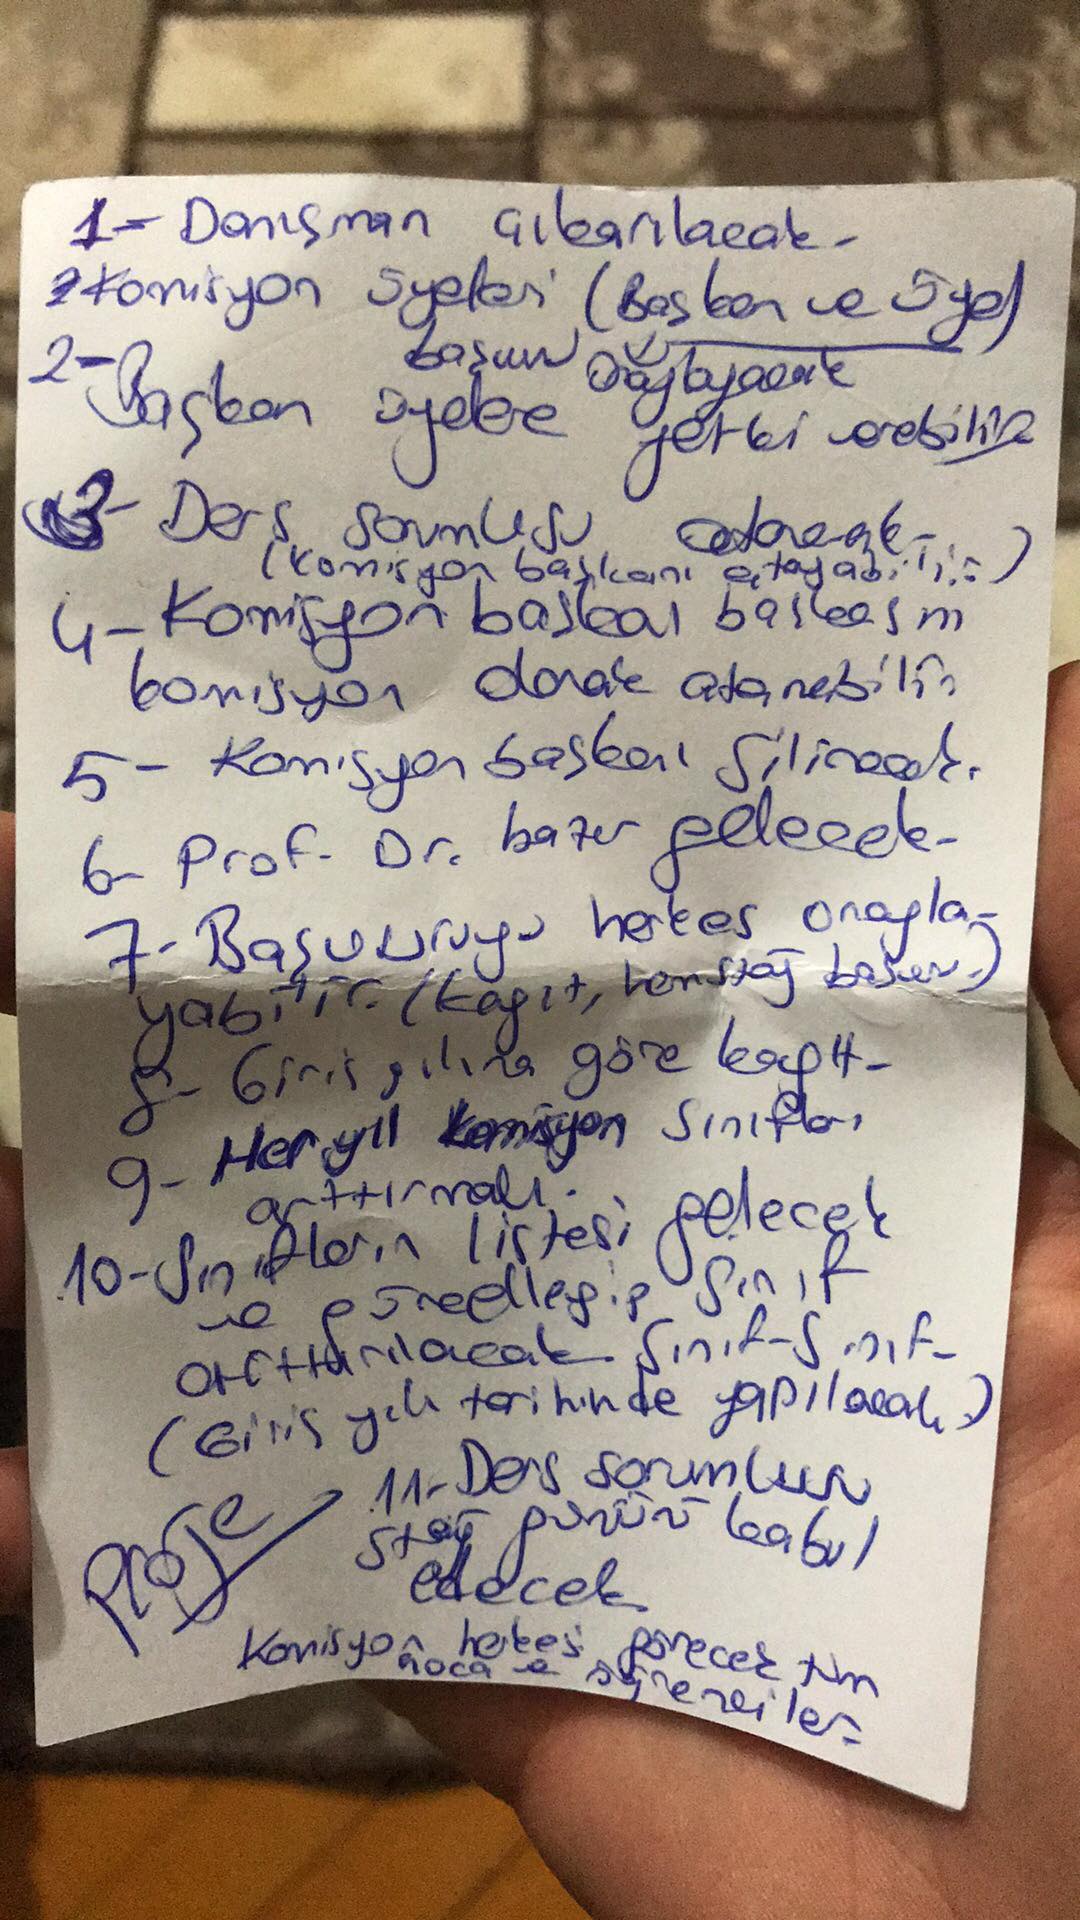 1- Danışman çıkarılacak-
Komisyon üyeleri (Başkan ve Üye)
başvuru Onaylayacak
2- Başkan üyelere yetki verebilir
3- Ders sorumlusu atanacak-
(Komisyon başkanı atayabilir)
4- Komisyon başkanı başkasını
komisyon olarak atanabilir
5- Komisyon başkanı silinecek.
6- Prof. Dr. gelecek-
7- Başvuruyu herkes onayla-
yabilir. (Kağıt, hemstaj başvur.)
8- Giriş yılına göre kayıt-
9- Her yıl Komisyon Sınıfları
arttırmalı.
10- Sınıfların listesi gelecek
ve güncelleyip Sınıf
arttırılacak Sınıf-Sınıf-
(Giriş yılı tarihinde yapılacak.)
11- Ders sorumlusu
staj gününü kabul
edecek
Proje
Komisyon herkesi görecek tüm
hoca ve öğrenciler-